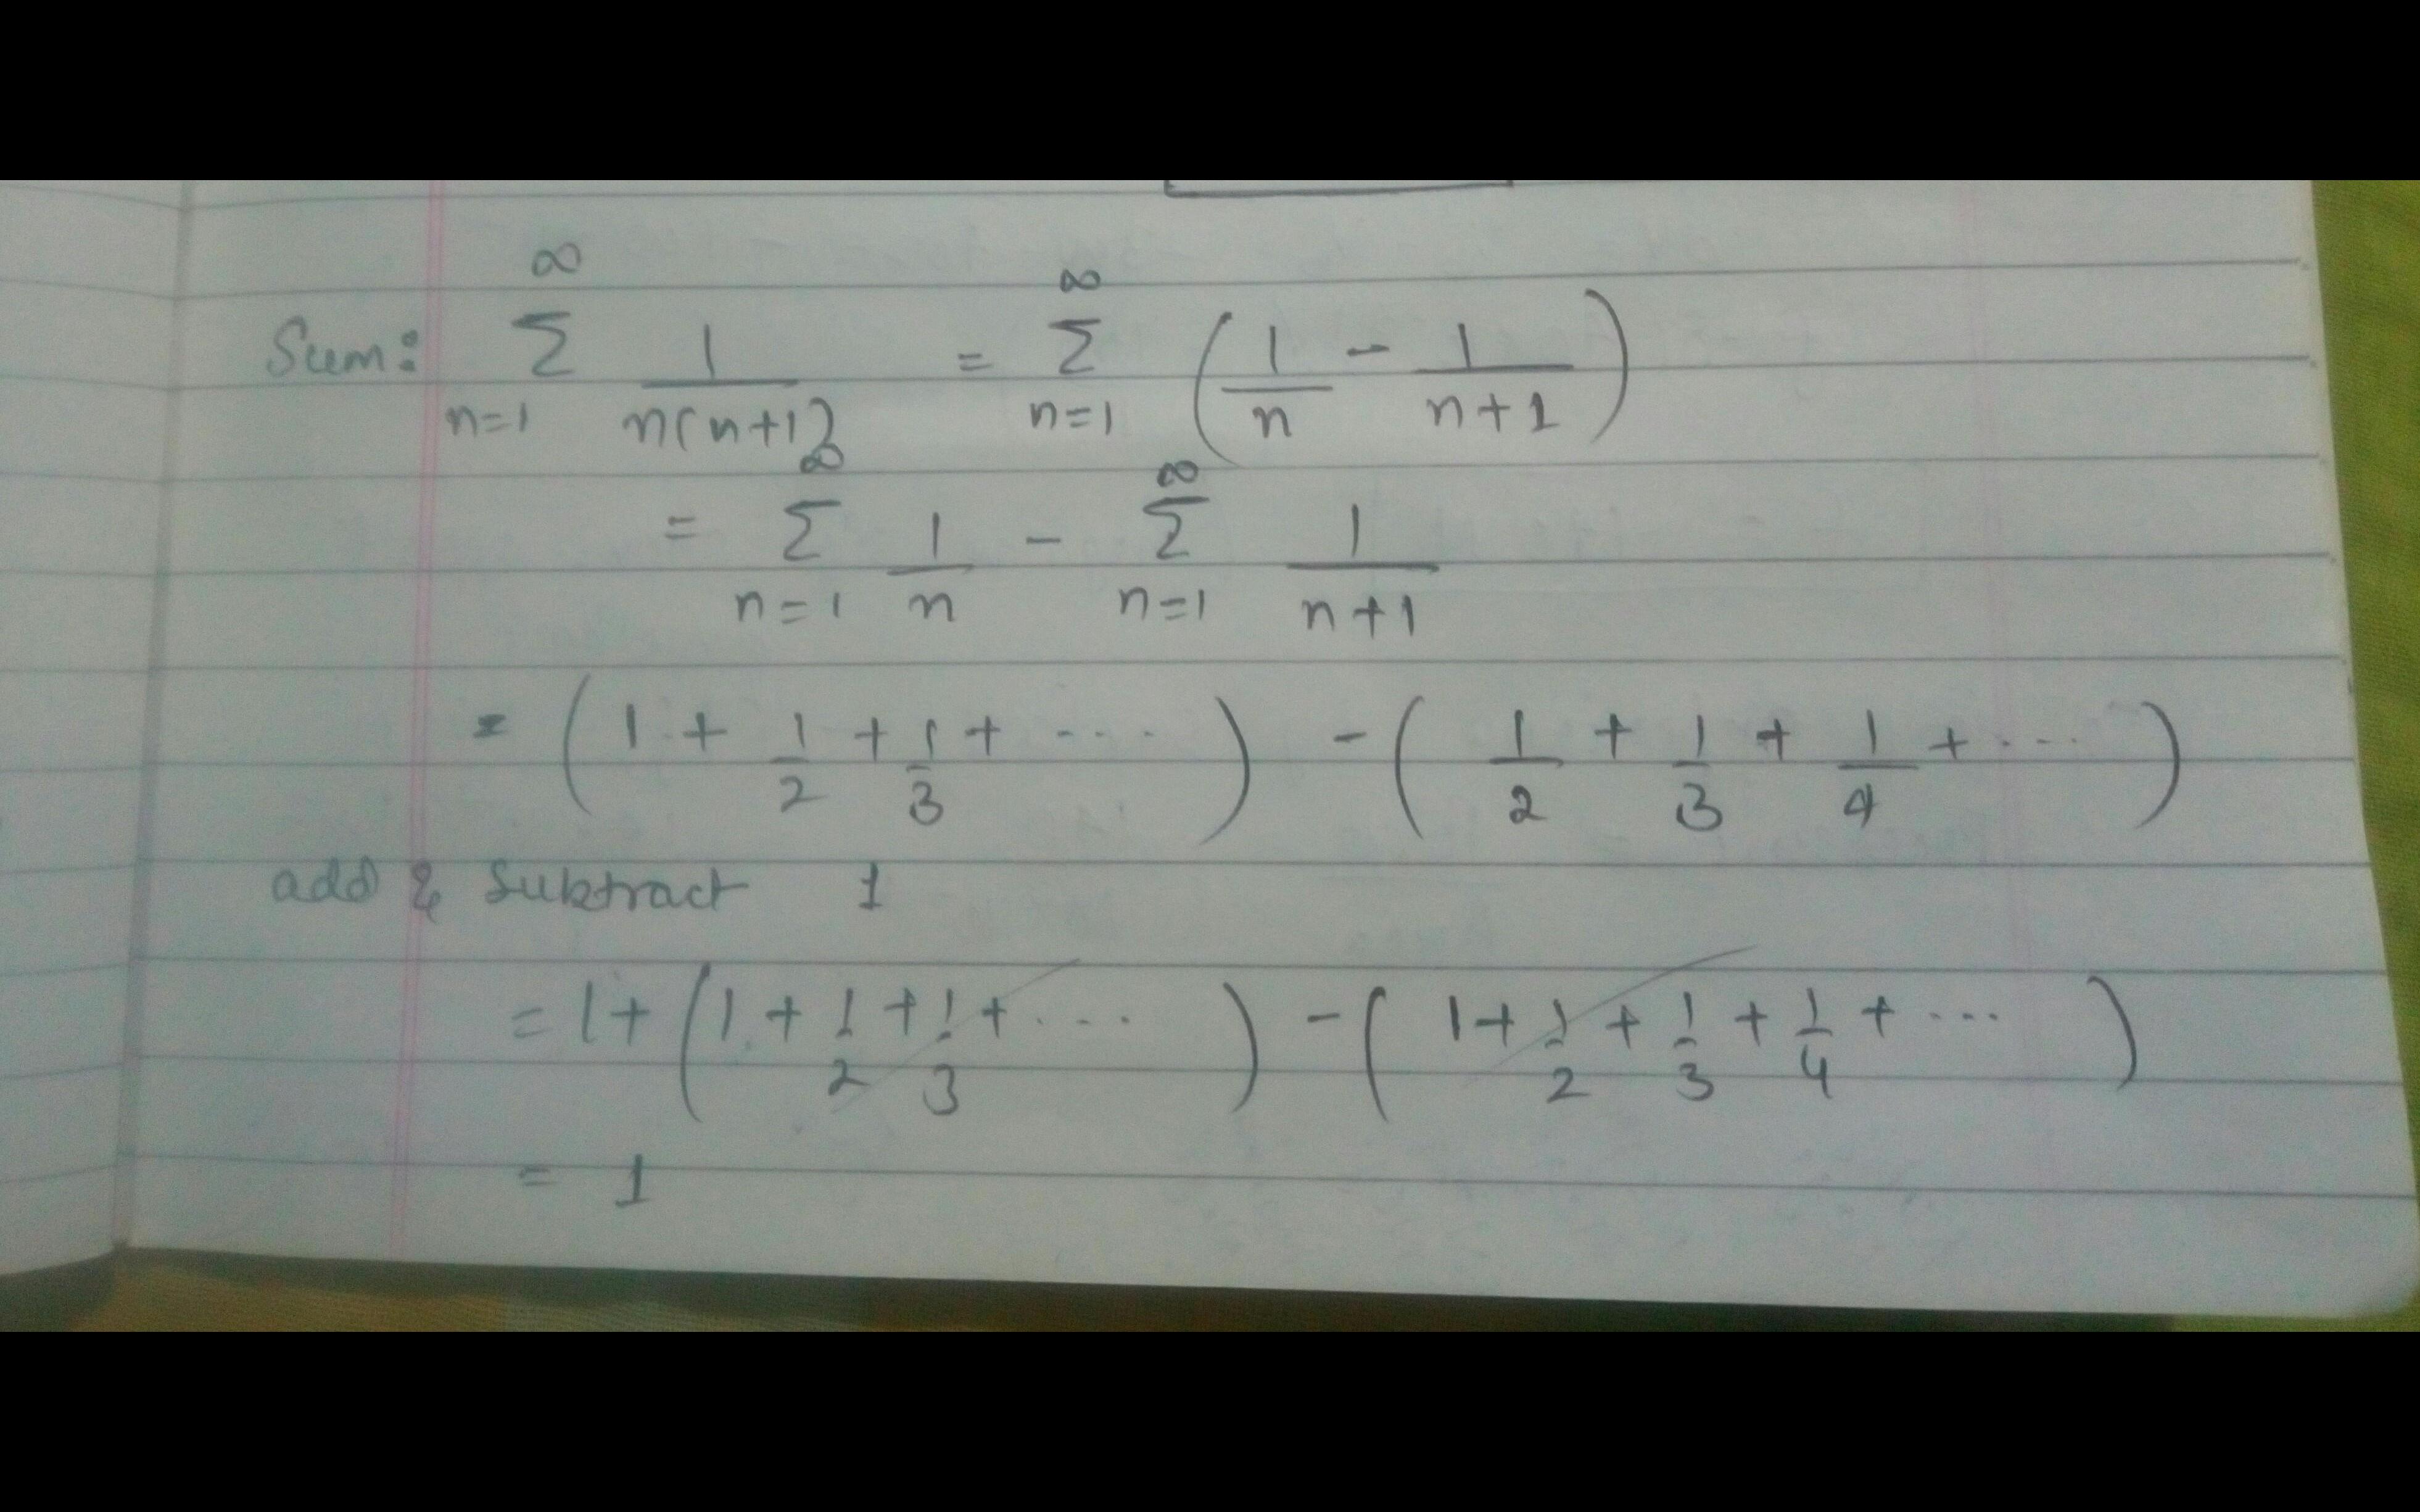 Sum: ∞ Σ n=1 1/n(n+1) = ∞ Σ n=1 (1/n - 1/n+1)
= ∞ Σ n=1 1/n - ∞ Σ n=1 1/n+1
= (1 + 1/2 + 1/3 + ...) - (1/2 + 1/3 + 1/4 + ...)
add & Subtract 1
= 1 + (1 + 1/2 + 1/3 + ...) - (1 + 1/2 + 1/3 + 1/4 + ...)
= 1